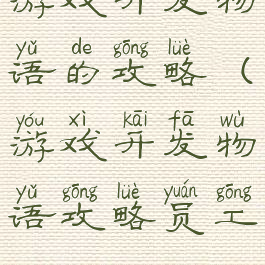 游戏开发物
yǔ de gōng lüè
语的攻略（
yóu xì kāi fā wù
游戏开发物
yǔ gōng lüè yuán gōng
语攻略员工